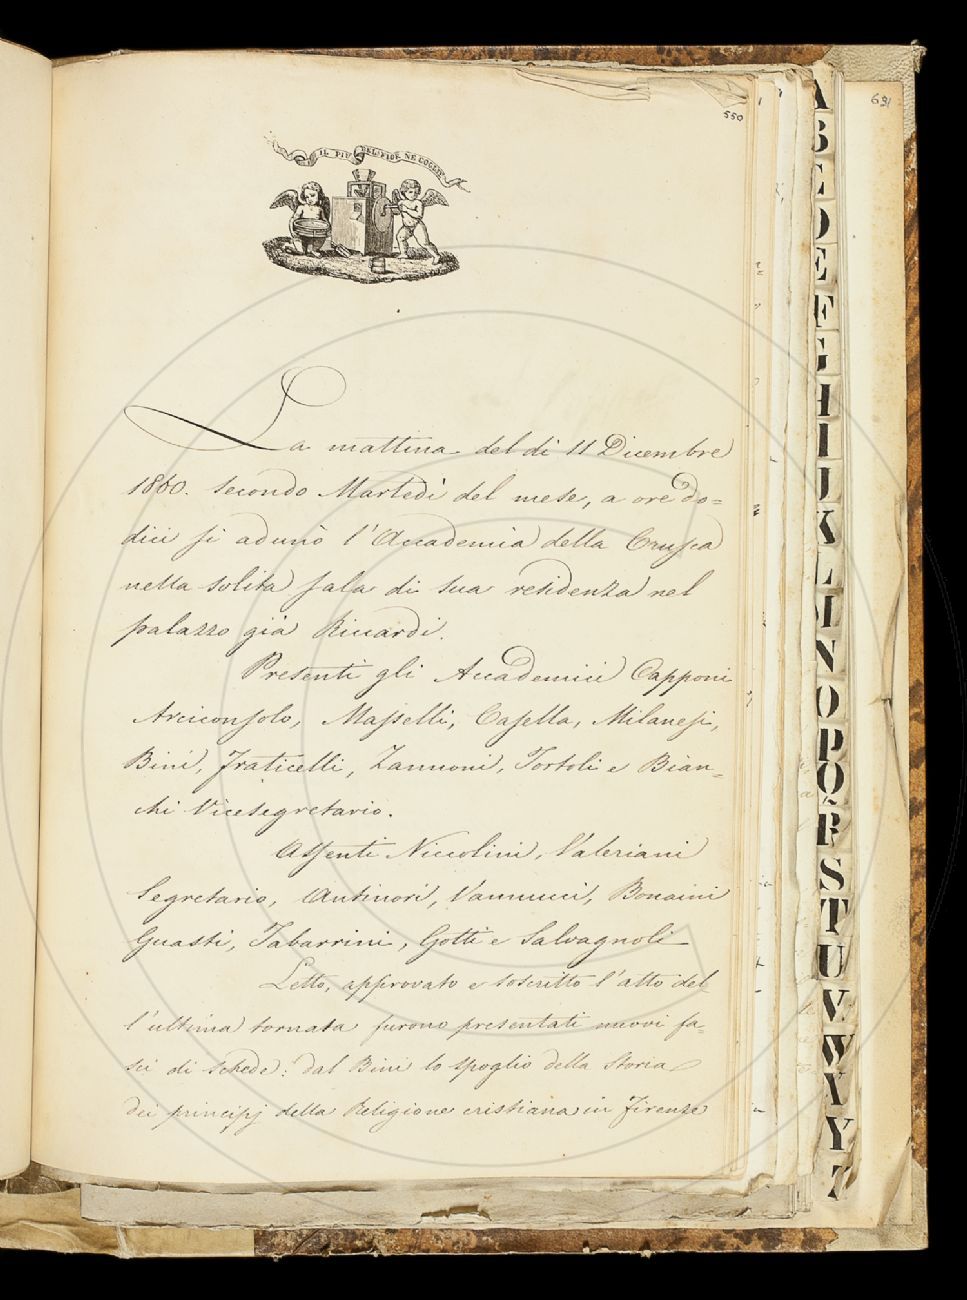 550
691
IL PIÙ BEL FIOR NE COGLIE
La mattina del dì 11 Dicembre
1860. secondo Martedì del mese, a ore do=
dici si adunò l'Accademia della Crusca
nella solita sala di sua residenza nel
palazzo già Riccardi.
Presenti gli Accademici Capponi
Arciconsolo, Masselli, Casella, Milanesi,
Bini, Fraticelli, Zannoni, Tortoli e Bian=
chi Vicesegretario.
Assenti Niccolini, Valeriani
Segretario, Antinori, Vannucci, Bonaini
Guasti, Tabarrini, Gotti e Salvagnoli
Letto, approvato e soscritto l'atto del
l'ultima tornata furono presentati nuovi fa=
sci di schede: dal Bini lo spoglio della Storia
dei principj della Religione cristiana in Firenze
A
B
C
D
E
F
G
H
I
J
K
L
M
N
O
P
Q
R
S
T
U
V
W
X
Y
Z